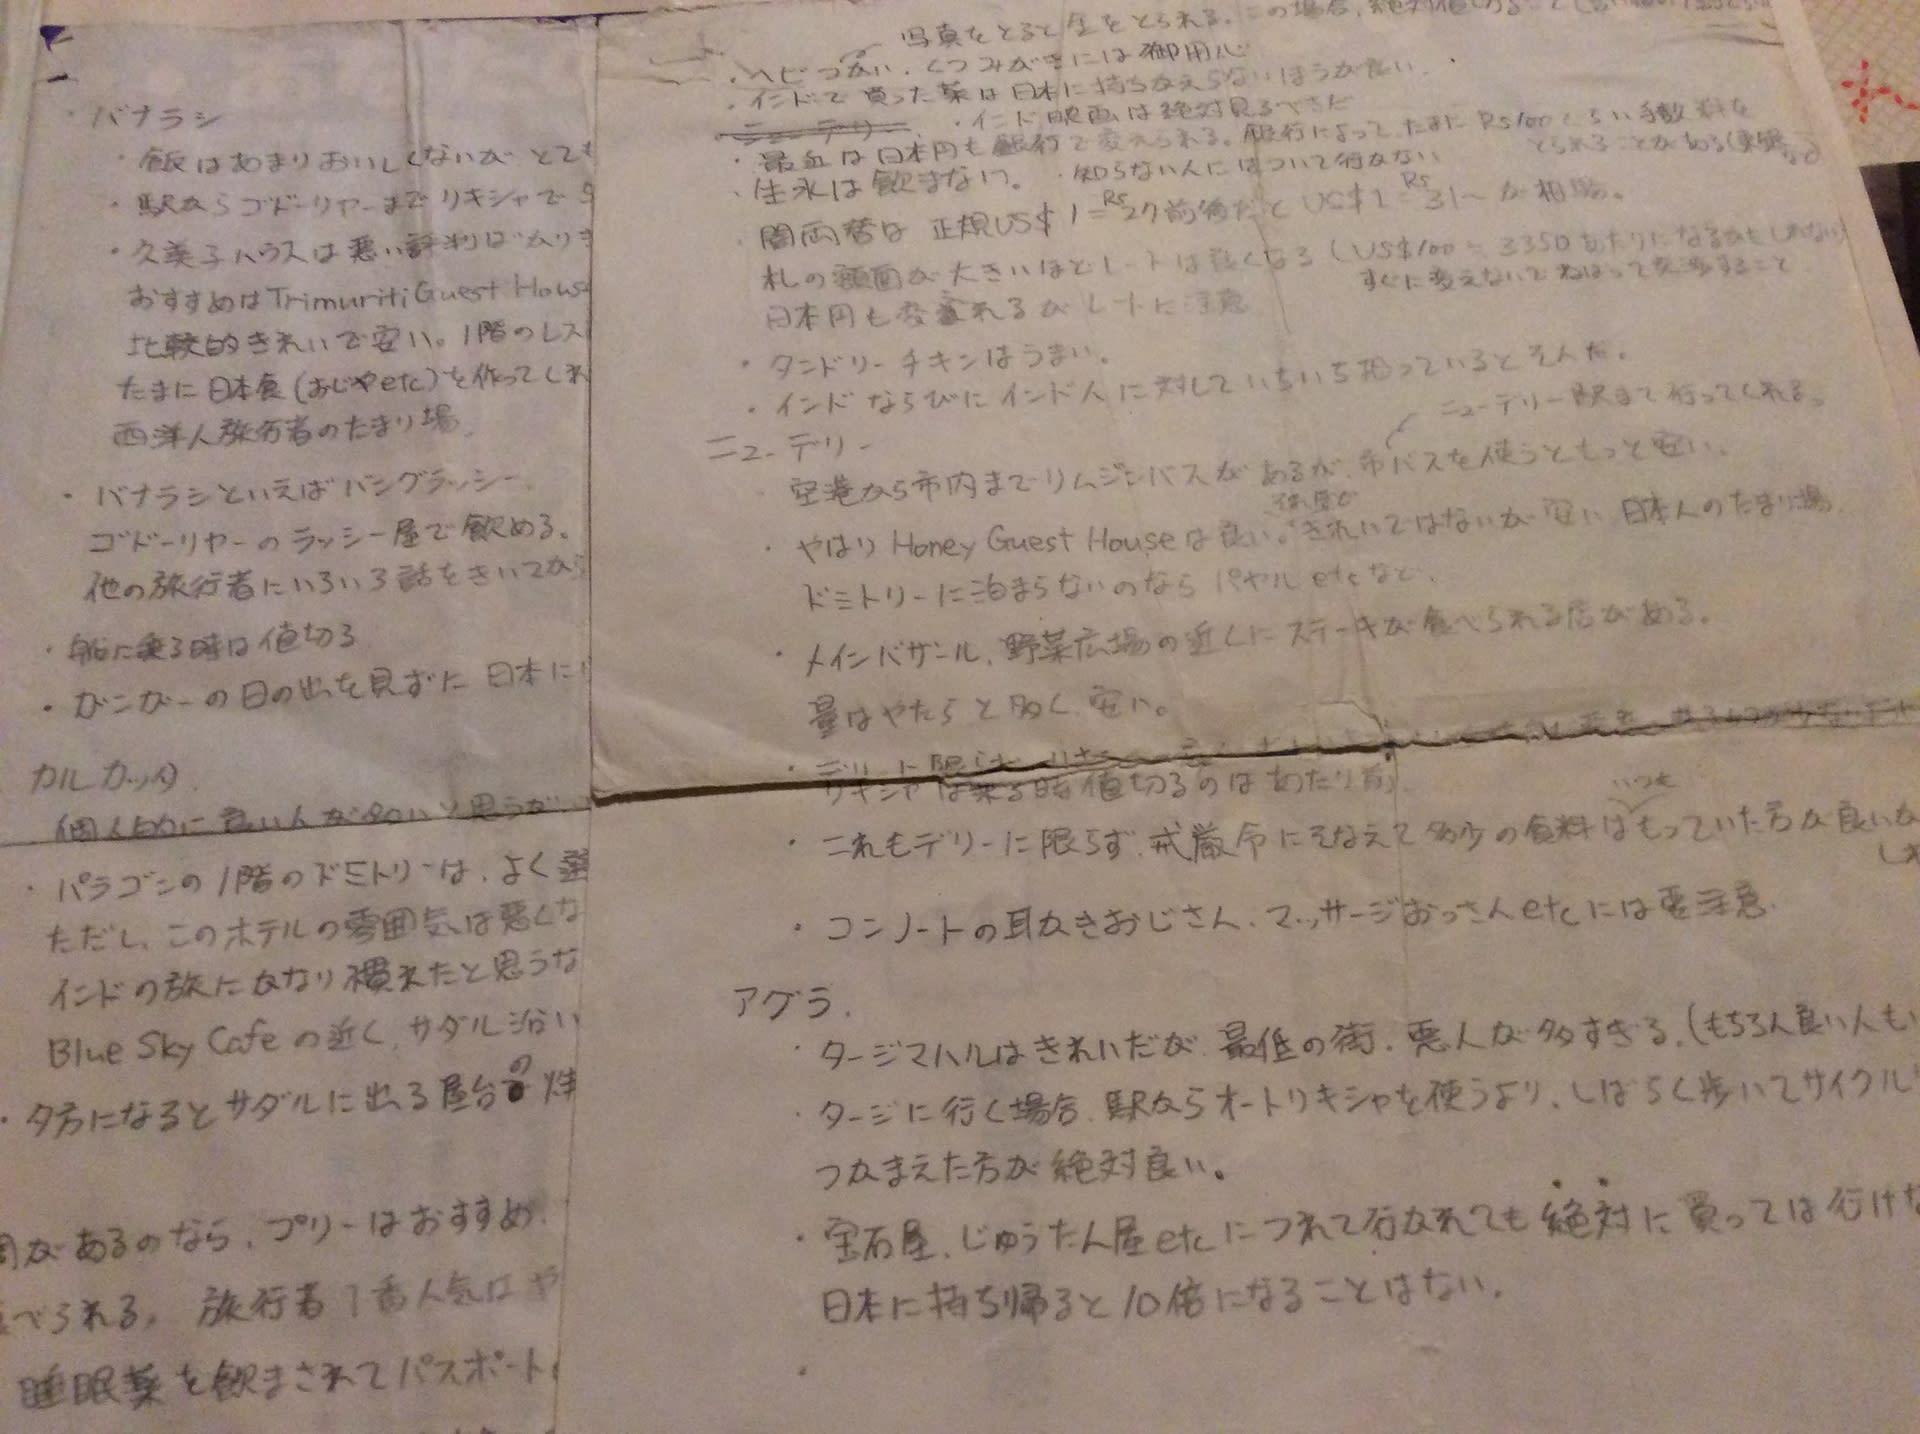 ・バナラシ
・飯はあまりおいしくないが とても
・駅からゴドーリヤーまでリキシャで
・久美子ハウスは悪い評判ばかりき
おすすめはTrimuriti Guest House
比較的きれいで安い。1階のレス
たまに日本食(おじやetc)を作ってくれ
西洋人旅行者のたまり場。
・バナラシといえばバングラッシー。
ゴドーリヤーのラッシー屋で飲める。
他の旅行者にいろいろ話をきいてから
・船に乗る時は値切る
・ガンガーの日の出を見ずに日本に
カルカッタ.
個人的に良い人が多いと思うが
・パラゴンの1階のドミトリーは、よく
ただし、このホテルの雰囲気は悪くな
インドの旅にかなり慣れたと思うな
Blue Sky Cafeの近く、サダル沿い
・夕方になるとサダルに出る屋台の
があるのなら、プリーはおすすめ.
べられる。旅行者1番人気はや
睡眠薬を飲まされてパスポート
写真をとると金をとられる。この場合、絶対値切ること
・ヘビつかい、くつみがきには御用心
・インドで買った薬は日本に持ちかえらないほうが良い.
ニューデリー ・インド映画は絶対見るべきだ
・最近は日本円も銀行で変えられる。銀行によって、たまにRs100くらい手数料を
とられることがある
・生水は飲まない。・知らない人にはついて行かない
・闇両替は 正規US$1=Rs27前後だとUS$1=Rs31〜が相場。
札の額面が大きいほどレートは良くなる(US$100=3350あたりになるかもしれない)
すぐに変えないでねばって交渉すること
日本円も変えれるがレートに注意
・タンドリーチキンはうまい。
・インドならびにインド人に対していちいち怒っているとそんだ。
ニューデリー
ニューデリー駅まで行ってくれる。
空港から市内までリムジンバスがあるが、市バスを使うともっと安い。
・やはりHoney Guest Houseは良い。きれいではないが安い 日本人のたまり場
ドミトリーに泊まらないのならパヤルetcなど.
・メインバザール、野菜広場の近くにステーキが食べられる店がある。
量はやたらと多く、安い。
リキシャは乗る時値切るのはあたり前
・これもデリーに限らず、戒厳令にそなえて多少の食料はいつももっていた方が良いか
しれ
・コンノートの耳かきおじさん、マッサージおっさんetcには要注意.
アグラ.
・タージマハルはきれいだが、最低の街、悪人が多すぎる。(もちろん良い人もい
・タージに行く場合、駅からオートリキシャを使うより、しばらく歩いてサイクル
つかまえた方が絶対良い。
・宝石屋、じゅうたん屋etcにつれて行かれても絶対に買っては行けな
日本に持ち帰ると10倍になることはない.